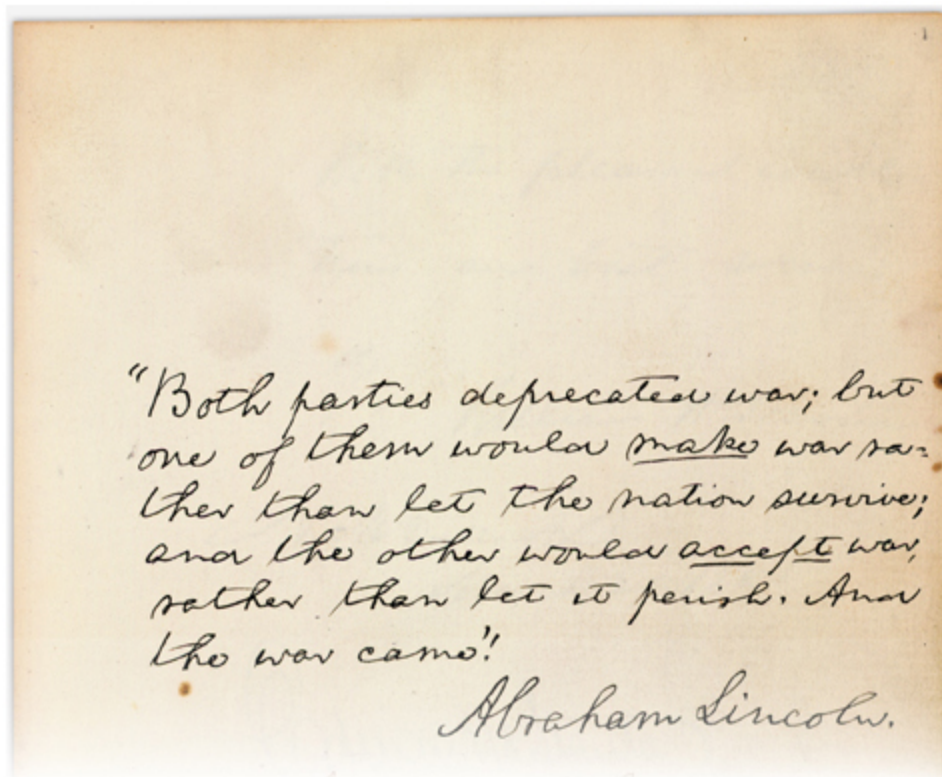 "Both parties deprecated war; but
one of them would make war ra=
ther than let the nation survive;
and the other would accept war,
rather than let it perish. And
the war came".
Abraham Lincoln.